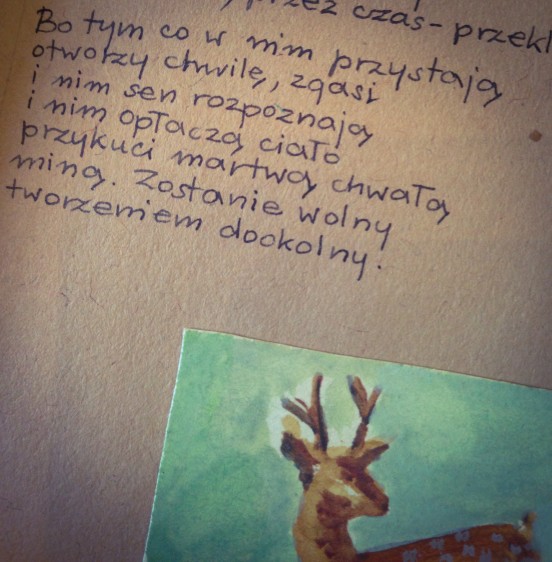 przez czas-przekl
Bo tym co w nim przystają
otworzy chwilę, zgasi
i nim sen rozpoznają
i nim opłaczą ciało
przykuci martwą chwałą
miną. Zostanie wolny
tworzeniem dookolny.